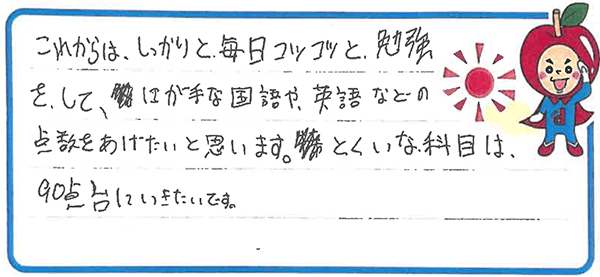 これからは、しっかりと、毎日コツコツと、勉強
を、して、にが手な国語や、英語などの
点数をあげたいと思います。とくいな科目は、
90点台にいきたいです。